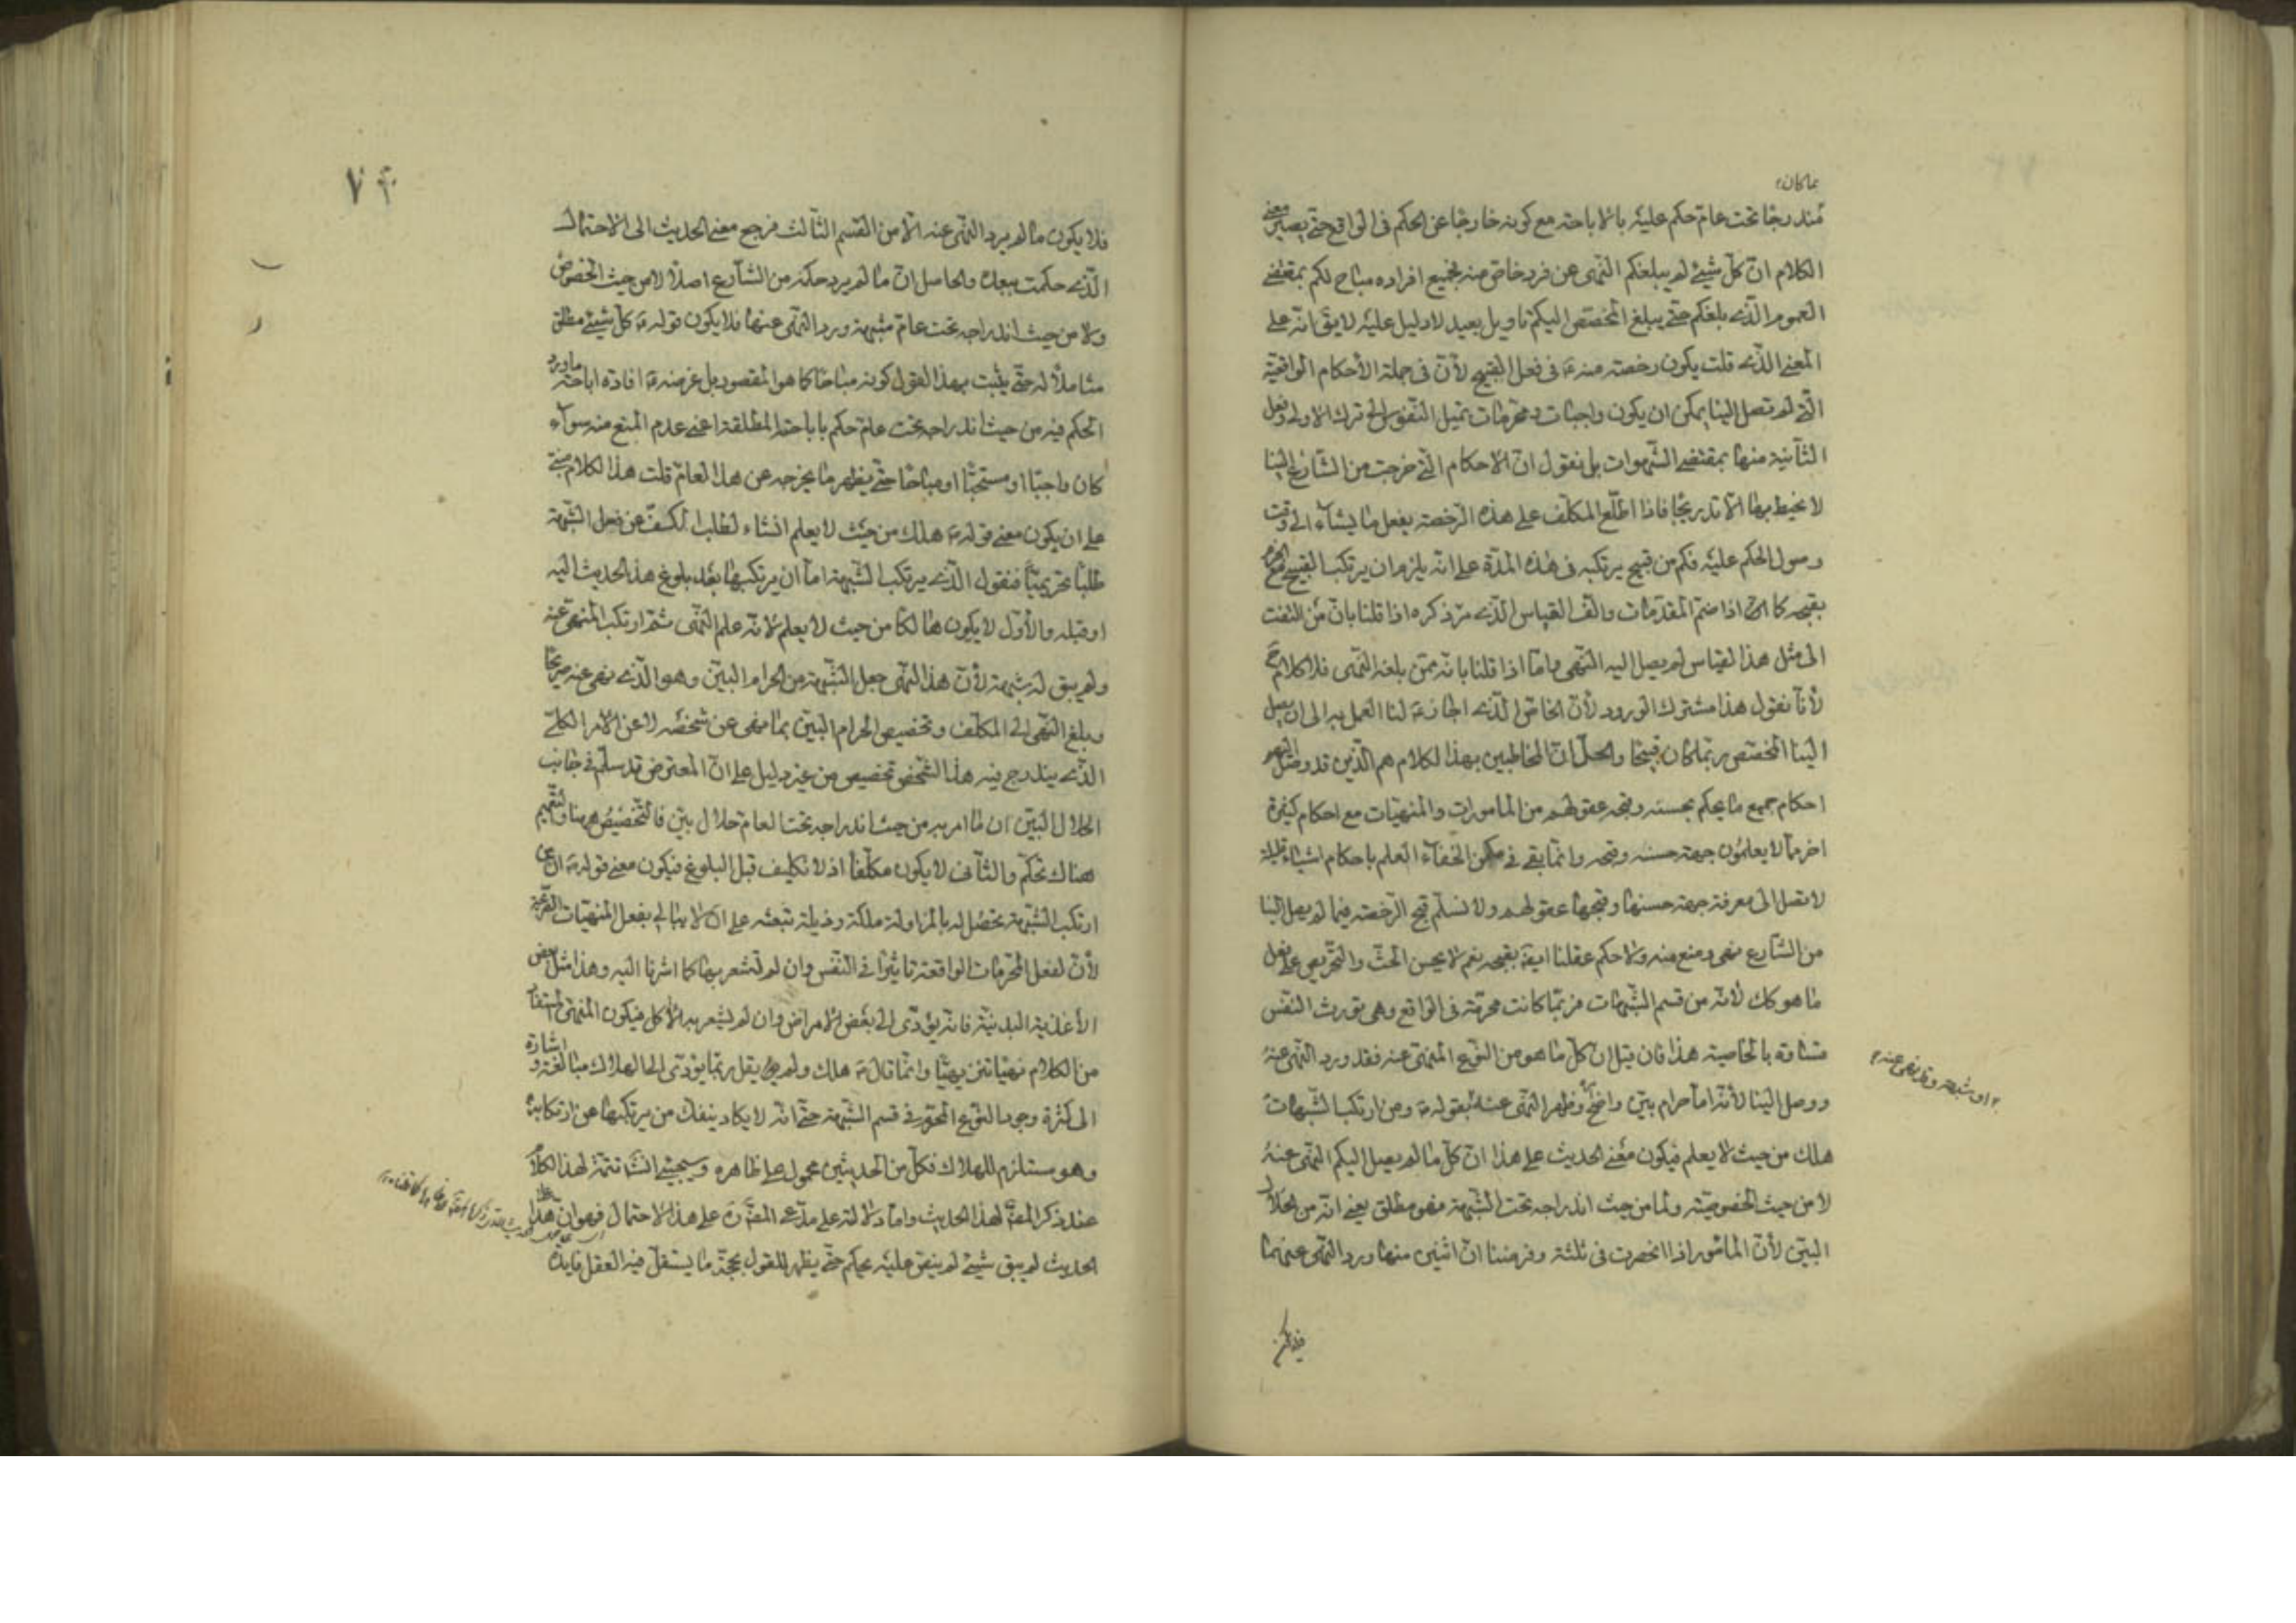 بما كان
مندرجا تحت عام حكم عليه بالاباحة مع كونه خارجا عن الحكم فى الواقع حتى يصير معنى
الكلام ان كل شيئ لم يبلغكم النهى عن فرد خاص منه فجميع افراده مباح لكم بمقتضى
العموم الذى بلغكم حتى يبلغ المخصص اليكم تاويل بعيد لا دليل عليه لا يق انه على
المعنى الذى قلت يكون رخصة منه ع فى فعل القبيح لأن فى جملة الأحكام الواقعية
التى لم تصل الينا يمكن ان يكون واجبات ومحرمات تميل النفوس الى ترك الاولى وفعل
الثانية منها بمقتضى الشهوات بل نقول ان الاحكام التى خرجت من الشارع الينا
لا نحيط بها الا تدريجا فاذا اطلع المكلف على هذه الرخصة يفعل ما يشاء الى وقت
وصول الحكم عليه فكم من قبيح يرتكبه فى هذه المدة على انه يلزم ان يرتكب القبيح
بقبحه كا اذا ضم المقدمات والف القياس الذى مر ذكره اذا قلنا بان من التفت
الى مثل هذا القياس لم يصل اليه النهى واما اذا قلنا بانه ممن بلغه النهى فلا كلام ح
لأنا نقول هذا مشترك الورود لأن الخاص الذى اجاز ع لنا العمل به الى ان يصل
الينا المخصص ربما كان قبيحا والحل ان المخاطبين بهذا الكلام هم الذين قد وصل اليهم
احكام جميع ما يحكم بحسنه وقبحه عقولهم من المامورات والمنهيات مع احكام كثيرة
اخر مما لا يعلمون جهة حسنه وقبحه وانما بقى فى مكمن الخفاء العلم باحكام اشياء قليلة
لا تصل الى معرفة جهة حسنها وقبحها عقولهم ولا نسلم قبح الرخصة فيما لم يصل الينا
من الشارع نهى ومنع منه ولا حكم عقلنا ايضا بقبحه نعم لا يحسن الحث والتحريص على فعل
ما هو كك لأنه من قسم الشبهات فربما كانت محرمة فى الواقع وهى تورث النفس
شقاوة بالخاصية هذا فان قيل ان كل ما هو من النوع المنهى عنه فقد ورد النهى عنه
ووصل الينا لأنه اما حرام بين واضح وظهر النهى عنه بقوله ع ومن ارتكب الشبهات
او شبهة وقد نهى عنه
هلك من حيث لا يعلم فيكون معنى الحديث على هذا ان كل ما لم يصل اليكم النهى عنه
لا من حيث الخصوصية ولا من حيث اندراجه تحت الشبهة فهو مطلق يعنى انه من الحلال
البين لأن الماثور اذا انحصرت فى ثلثة وفرضنا ان اثنين منها ورد النهى عنهما
٧٣
فلا يكون ما لم يرد النهى عنه الا من القسم الثالث فرجع معنى الحديث الى الاحتمال
الذى حكمت ببعده والحاصل ان ما لم يرد حكمه من الشارع اصلا لا من حيث الخصوص
ولا من حيث اندراجه تحت عام مشبهة ورد النهى عنها فلا يكون قوله ع كل شيئ مطلق
شاملا له حتى يثبت بهذا القول كونه مباحا كما هو المقصود بل غرضه ع افادة اباحة ما ورد
الحكم فيه من حيث اندراجه تحت عام حكم باباحته المطلقة اعنى عدم المنع منه سواء
كان واجبا او مستحبا او مباحا حتى يظهر ما يخرجه عن هذا العام قلت هذا الكلام مبنى
على ان يكون معنى قوله ع هلك من حيث لا يعلم انشاء لطلب الكف عن فعل الشبهة
طلبا تحريميا فنقول الذى يرتكب الشبهة اما ان يرتكبها بعد بلوغ هذا الحديث اليه
او قبله والأول لا يكون هالكا من حيث لا يعلم لأنه علم النهى ثم ارتكب المنهى عنه
ولم يبق له شبهة لأن هذا النهى جعل الشبهة من الحرام البين وهو الذى نهى عنه صريحا
وبلغ النهى الى المكلف وتخصيص الحرام البين بما نهى عن شخصه لا عن الامر الكلى
الذى يندرج فيه هذا الشخص تخصيص من غير دليل على ان المعترض قد سلم فى جانب
الحلال البين ان ما امر به من حيث اندراجه تحت العام حلال بين فالتخصيص ههنا والتعميم
هناك تحكم والثانى لا يكون مكلفا اذ لا تكليف قبل البلوغ فيكون معنى قوله ع ان من
ارتكب الشبهة تحصل له بالمزاولة ملكة رذيلة تبعثه على ان لا يبالى بفعل المنهيات الشرعية
لأن لفعل المحرمات الواقعة تاثيرا فى النفس وان لم تشعر بها كما اشرنا اليه وهذا مثل بعض
الأغذية البدنية فانه يؤدى الى بعض الأمراض وان لم يشعر به الأكل فيكون المنهى المستفاد
من الكلام نهيا تنزيهيا وانما قال ع هلك ولم يقل ربما يؤدى الى الهلاك مبالغة واشارة
الى كثرة وجود النوع المحرم فى قسم الشبهة حتى انه لا يكاد ينفك من يرتكبها عن ارتكابه
وهو مستلزم للهلاك فكل من الحديثين محمول على ظاهره وسيجيئ انشا تتمة لهذا الكلام
عند ذكر المص لهذا الحديث واما دلالته على مدعى المص ره على هذا الاحتمال فهو ان هذا
الحديث لم يبق شيئ لم ينص عليه بحكم حتى يظهر للقول بحجية ما يستقل فيه العقل فايدة